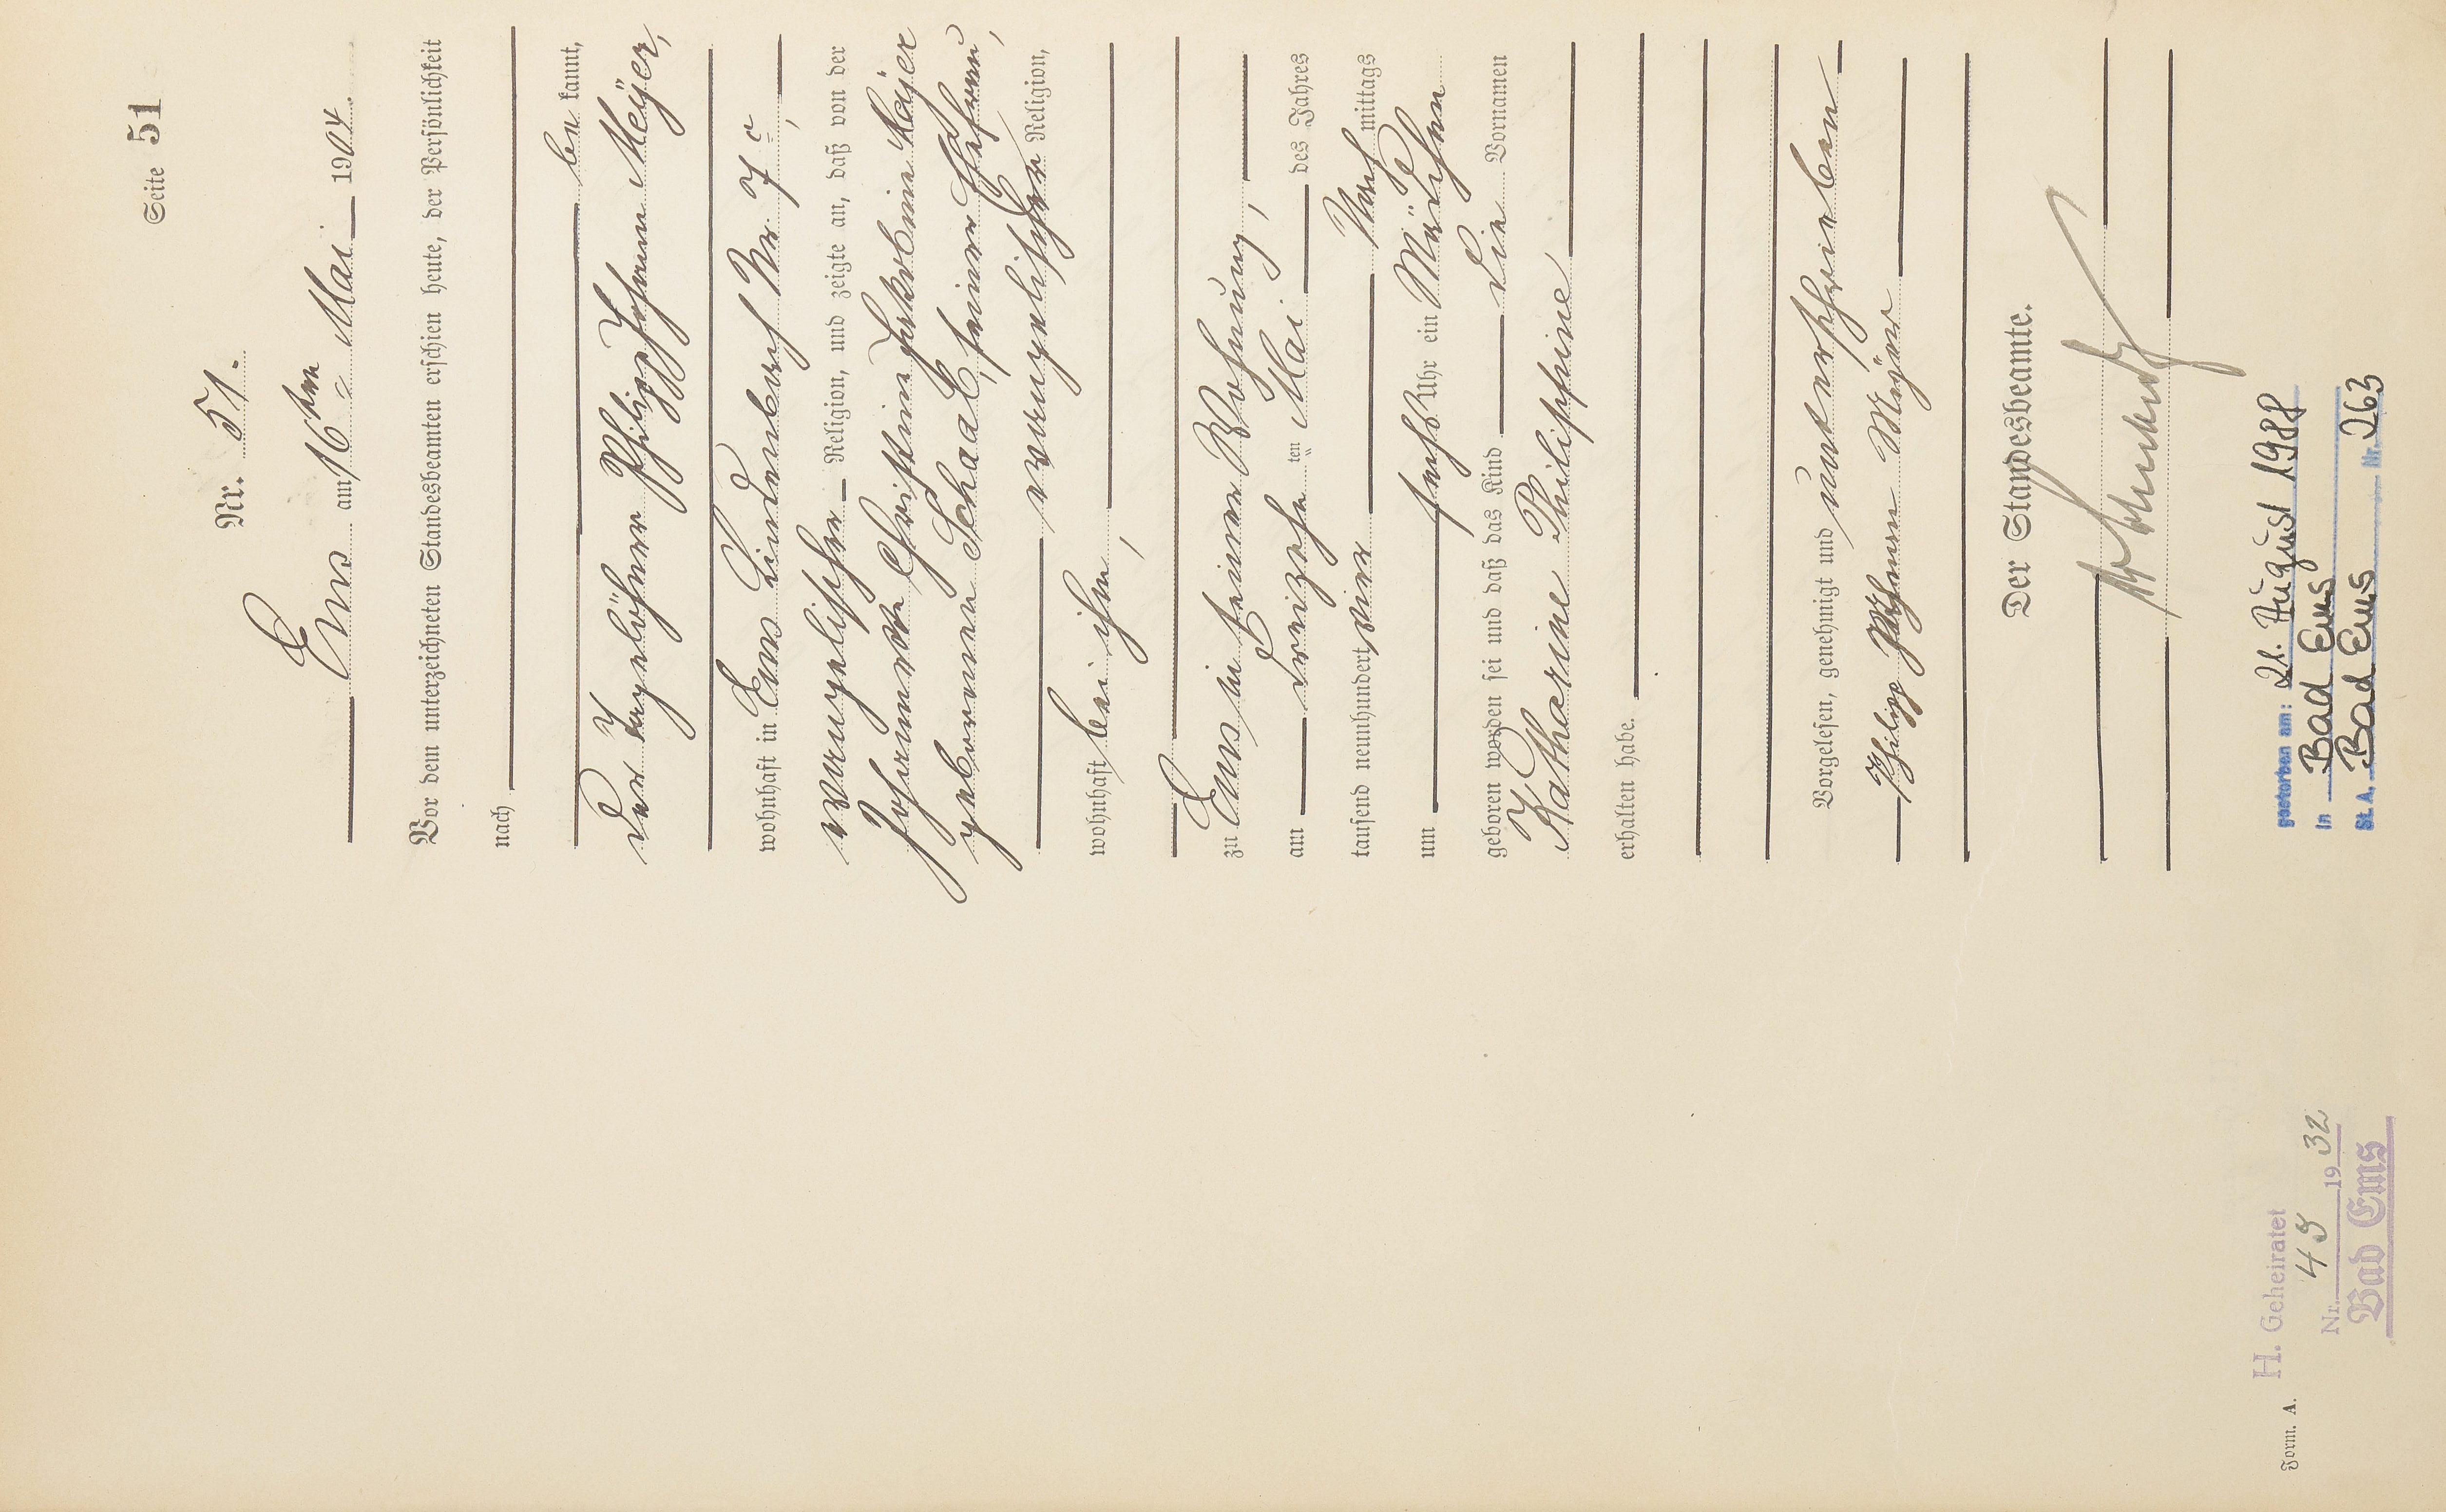 Seite 51
Nr. 51.
Ems am 16ten Mai 1904.
Vor dem unterzeichneten Standesbeamten erschien heute, der Persönlichkeit
nach
be kannt,
der Tagelöhner Philipp Johann Meÿer,
wohnhaft in Ems Lindenbach Nr. 7a,
evangelischer Religion, und zeigte an, daß von der
Johannette Christine Jakobine Meÿer
geborenen Schaab, seiner Ehefrau,
evangelischer Religion,
wohnhaft bei ihm,
zu Ems in seiner Wohnung,
am dreizehn ten Mai des Jahres
tausend neunhundert vier Nach mittags
um sechs Uhr ein Mädchen
geboren worden sei und daß das Kind die Vornamen
Katharine Philippine
erhalten habe.
Vorgelesen, genehmigt und unterschrieben
Philipp Johann Meÿer
Der Standesbeamte.
gestorben am: 21. August 1988
in Bad Ems
St. A. Bad Ems Nr. 263
Form. A.
H. Geheiratet
Nr. 49 1932
Bad Ems